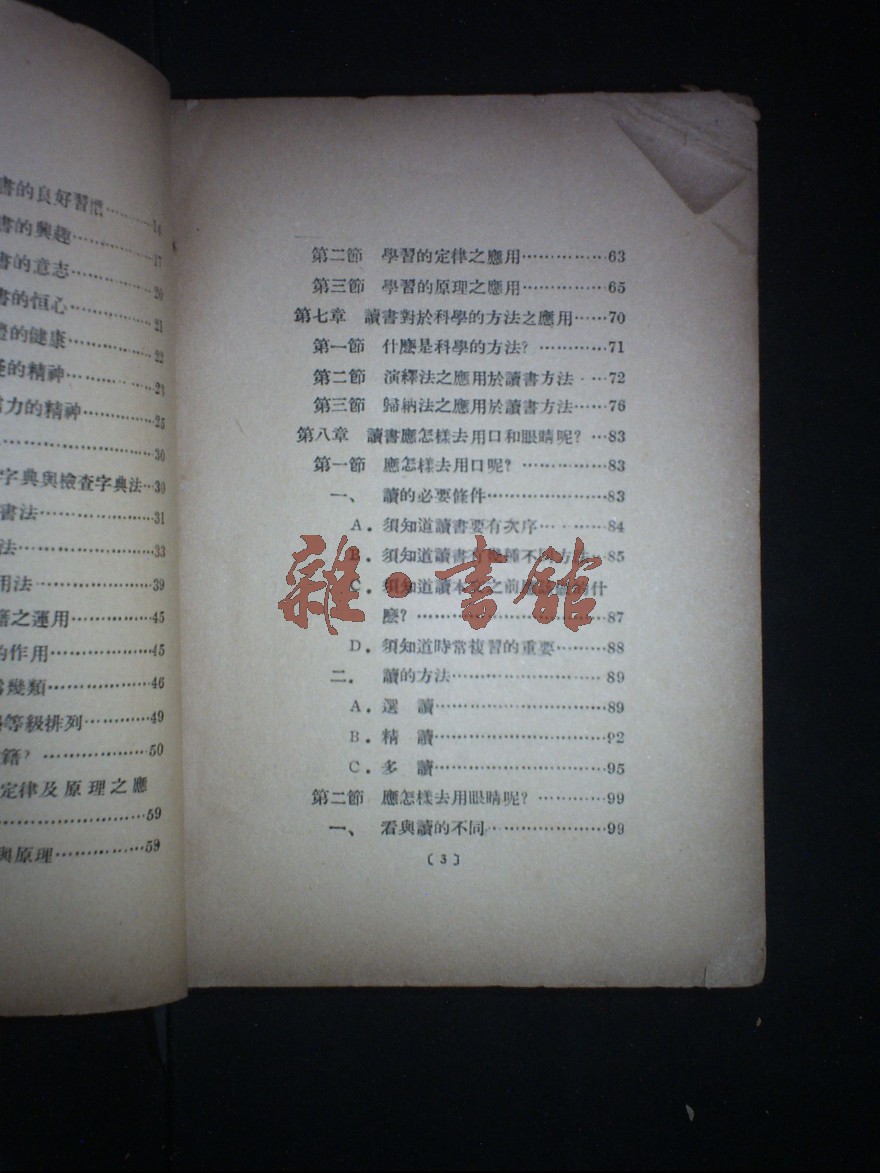 書的良好習慣………14
書的興趣…………17
書的意志…………20
書的恒心…………21
的健康…………22
的精神…………23
力的精神…………25
…………30
字典與檢查字典法…30
書法…………31
法…………33
用法…………39
之運用…………45
的作用…………45
幾類…………46
等級排列…………49
籍?…………50
定律及原理之應
…………59
與原理…………59
第二節 學習的定律之應用……………63
第三節 學習的原理之應用……………65
第七章 讀書對於科學的方法之應用……70
第一節 什麼是科學的方法?…………71
第二節 演釋法之應用於讀書方法…72
第三節 歸納法之應用於讀書方法……76
第八章 讀書應怎樣去用口和眼睛呢?…83
第一節 應怎樣去用口呢?…………83
一、 讀的必要條件…………………83
A. 須知道讀書要有次序…………84
B. 須知道讀書有幾種不同方法…85
C. 須知道讀本文之前應 什
麼?…………………………87
D. 須知道時常複習的重要………88
二. 讀的方法………………………89
A. 選 讀…………………………89
B. 精 讀…………………………92
C. 多 讀…………………………95
第二節 應怎樣去用眼睛呢?…………99
一、 看與讀的不同…………………99
〔3〕
雜·書館